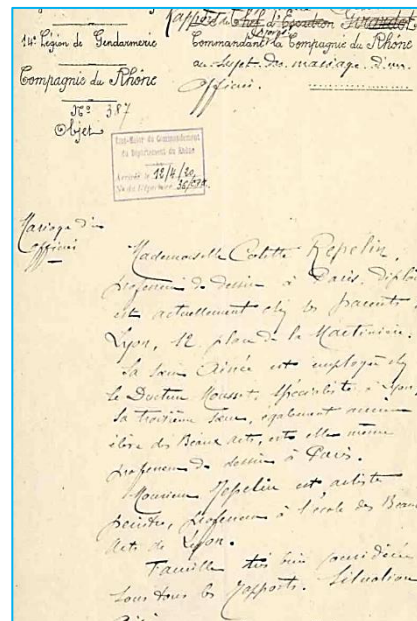 14e Légion de Gendarmerie
Compagnie du Rhône
No 387
Objet
Rapport du Chef d'Escadron Giraudot
Commandant la Compagnie du Rhône
au sujet du mariage d'un
Officier.
Etat-Major du Commandement
du Département du Rhône
Arrivée le 12/4/20
Mariage d'un
Officier
Mademoiselle Colette Repelin,
professeur de dessin à Paris, diplô
est actuellement chez ses parents à
Lyon, 12 place de la Martinière.
Sa sœur Ainée est employée chez
le Docteur Mousset, spécialiste à Lyon,
Sa troisième sœur, également ancienne
élève des Beaux arts, est elle même
professeur de dessin à Paris.
Monsieur Repelin est artiste
peintre, professeur à l'école des Beaux
Arts de Lyon.
Famille très bien considérée
sous tous les rapports. Situation